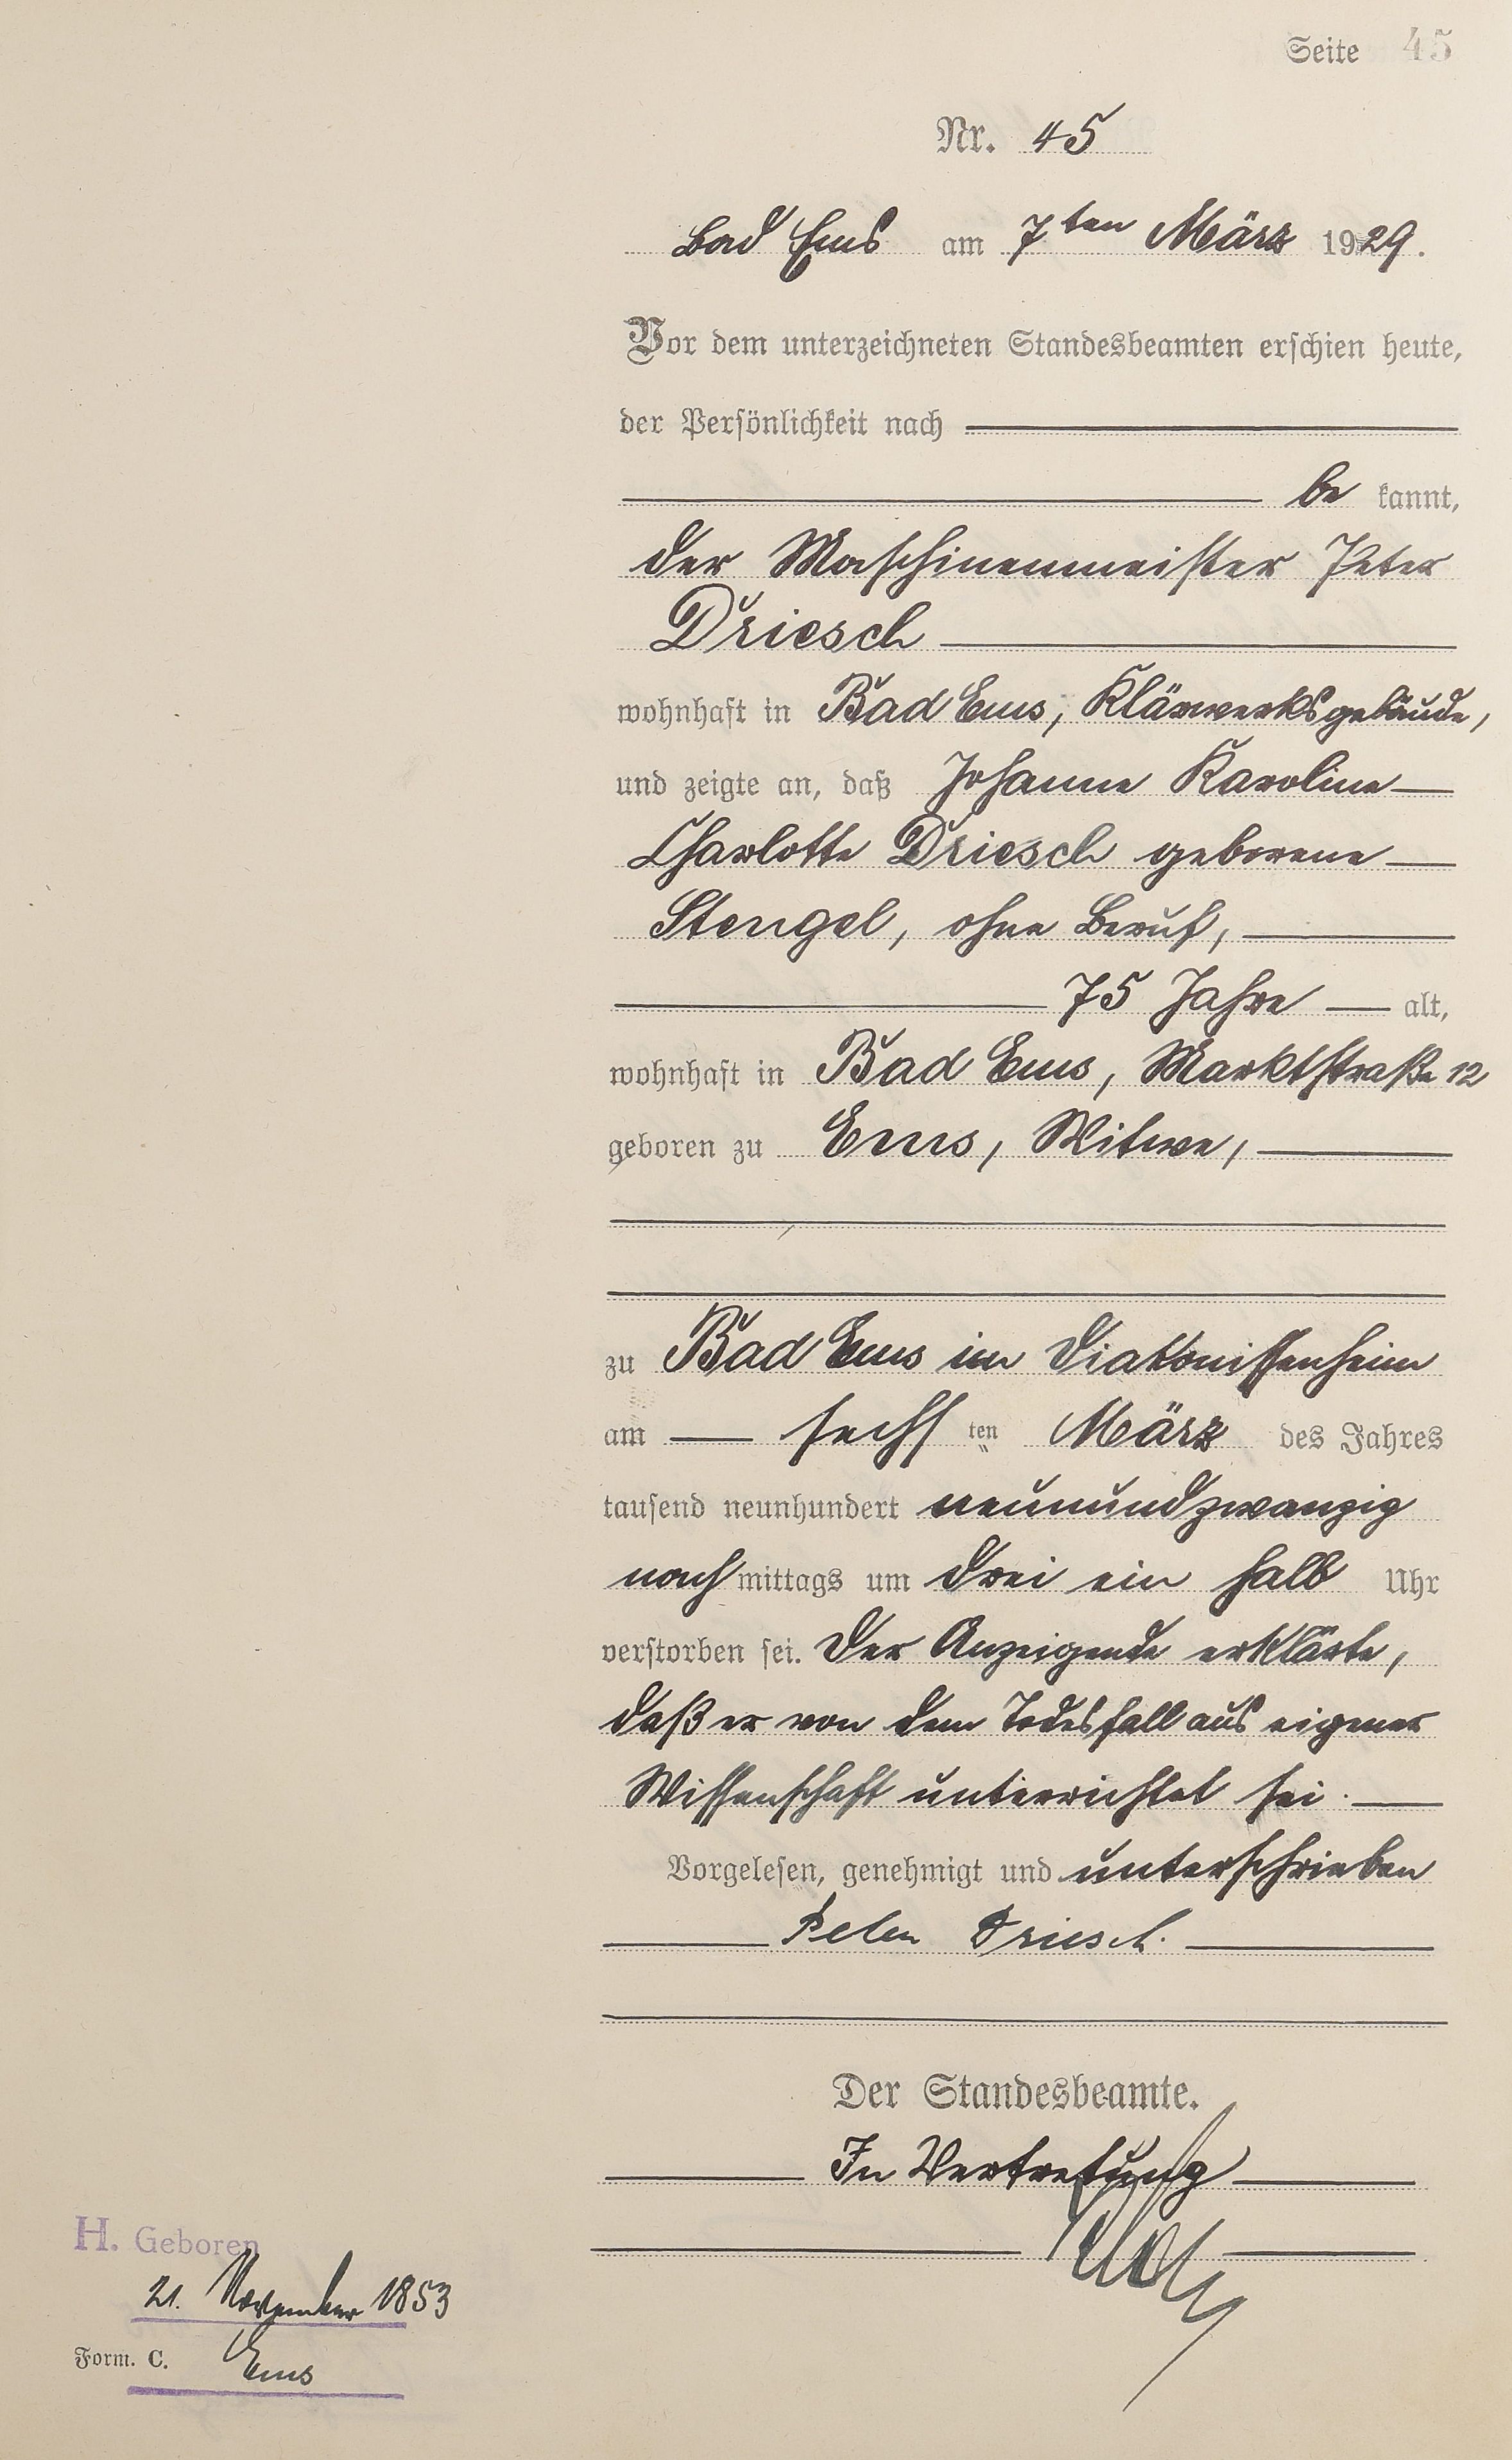 Seite 45
Nr. 45
Bad Ems am 7ten März 1929.
Vor dem unterzeichneten Standesbeamten erschien heute,
der Persönlichkeit nach
be kannt,
der Maschinenmeister Peter
Driesch
wohnhaft in Bad Ems, Klärwerksgebäude,
und zeigte an, daß Johanne Karoline
Charlotte Driesch geborene
Stengel, ohne Beruf,
75 Jahre alt,
wohnhaft in Bad Ems, Marktstraße 12
geboren zu Ems, Witwe,
zu Bad Ems im Diakonissenheim
am sechs ten März des Jahres
tausend neunhundert neunundzwanzig
nach mittags um drei ein halb Uhr
verstorben sei. Der Anzeigende erklärte,
daß er von dem Todesfall aus eigener
Wissenschaft unterrichtet sei.
Vorgelesen, genehmigt und unterschrieben
Peter Driesch.
Der Standesbeamte.
In Vertretung
H. Geboren
21. November 1853
Form. C. Ems